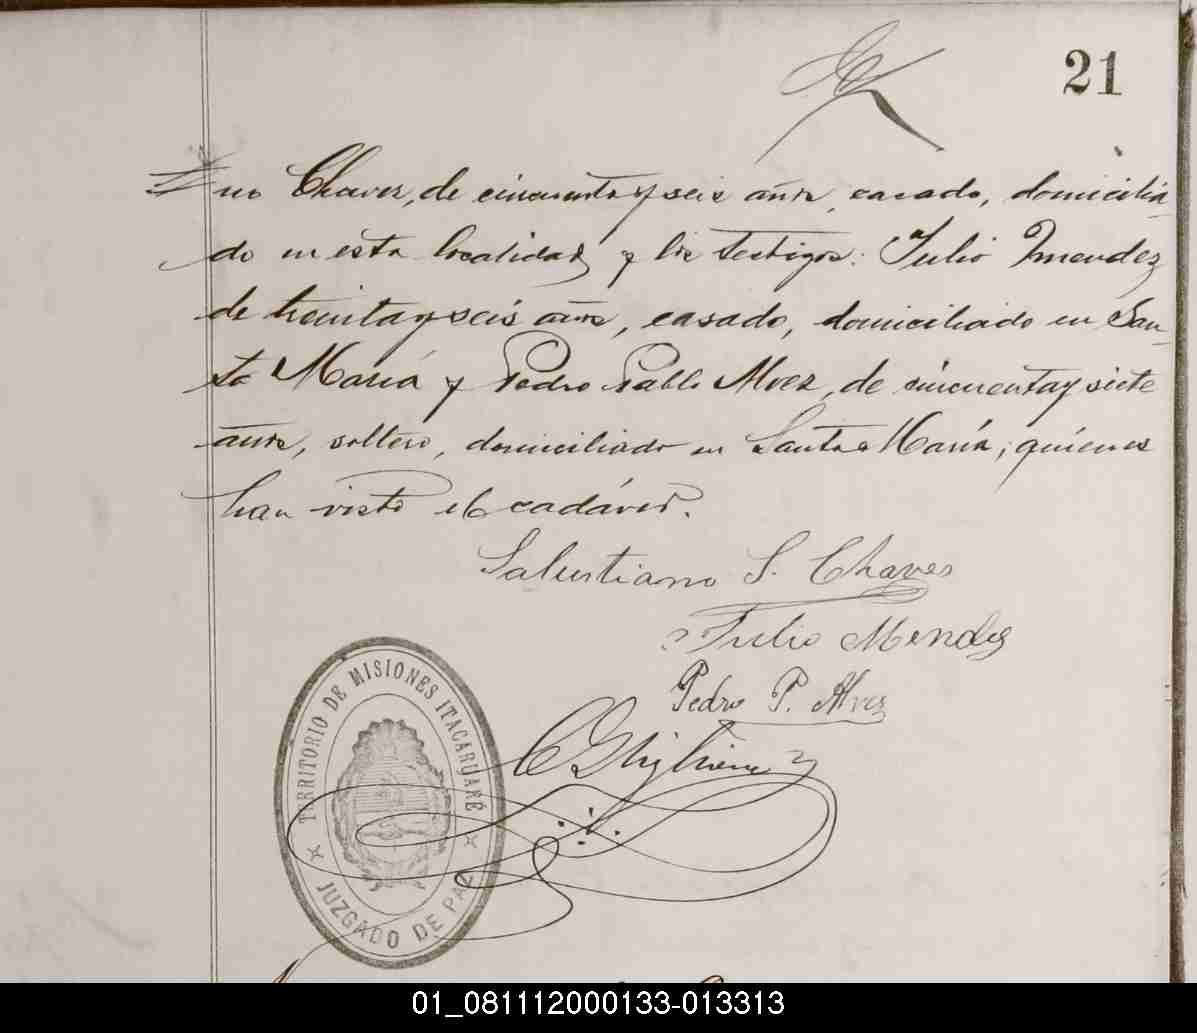 21
no Chaves, de cincuenta y seis años, casado, domicilia-
do en esta localidad y los testigos: Julio Mendez
de treinta y seis años, casado, domiciliado en San-
ta María y Pedro Pablo Alvez, de cincuenta y siete
años, soltero, domiciliado en Santa María; quienes
han visto el cadáver.
Salustiano S. Chaves
Julio Mendez
Pedro P. Alvez
TERRITORIO DE MISIONES ITACARUARÉ
JUZGADO DE PAZ
01_081112000133-013313